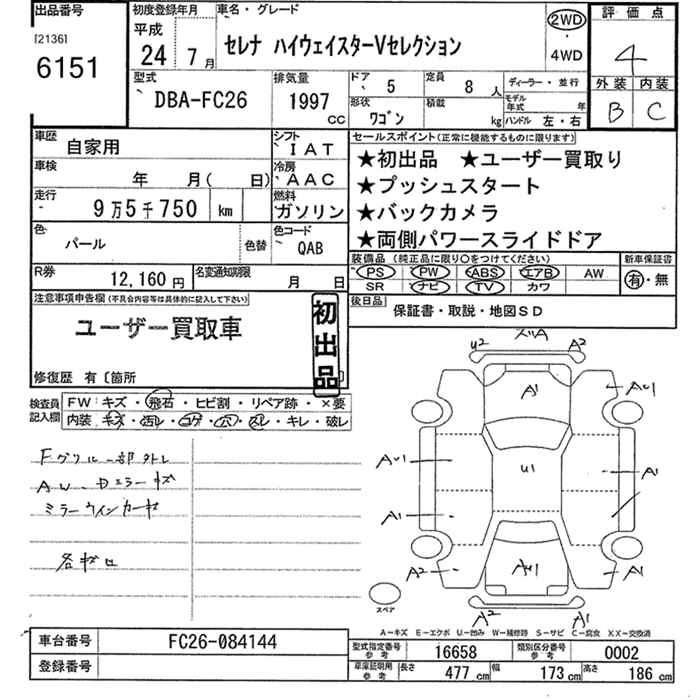 出品番号 初度登録年月 車名・グレード 2WD 評価点
[2136] 平成
6151 24年 7月 セレナ ハイウェイスターVセレクション ・ 4
4WD
型式 排気量 ドア 5 定員 8人 ディーラー・並行 外装 内装
DBA-FC26 1997cc 形状 ワゴン 積載 kg モデル年式 年 B C
ハンドル 左・右
車歴 自家用 シフト IAT セールスポイント(正常に機能するものに限ります)
車検 年 月( 日) 冷房 AAC ★初出品 ★ユーザー買取り
走行 9万5千750 km 燃料 ガソリン ★プッシュスタート
★バックカメラ
色 パール 色替 色コード QAB ★両側パワースライドドア
R券 12,160円 名変通知期限 月 日 装備品(純正品に限り〇をつけてください) 新車保証書
PS PW ABS エアB AW 有・無
SR ナビ TV カワ
注意事項申告欄(不具合内容等は具体的に記入して下さい) 後日品 保証書・取説・地図SD
ユーザー買取車 初出品
修復歴 有〔箇所
検査員記入欄 FW:キズ・飛石・ヒビ割・リペア跡・×要
内装・キズ・汚レ・コゲ・穴・スレ・キレ・破レ
Fグリル一部外レ
AW、Dミラーキズ
ミラーウインカーキズ
各キズロ
U2 A2
A1 AU1
AU1 U1 A1
A1
A2 AU1 A1
スペア
A2 A1
A−キズ E−エクボ U−凹み W−補修跡 S−サビ C−腐食 XX−交換済
車台番号 FC26-084144 型式指定番号 参考 16658 類別区分番号 参考 0002
登録番号 車庫証明用 参考 長さ 477 cm 幅 173 cm 高さ 186 cm